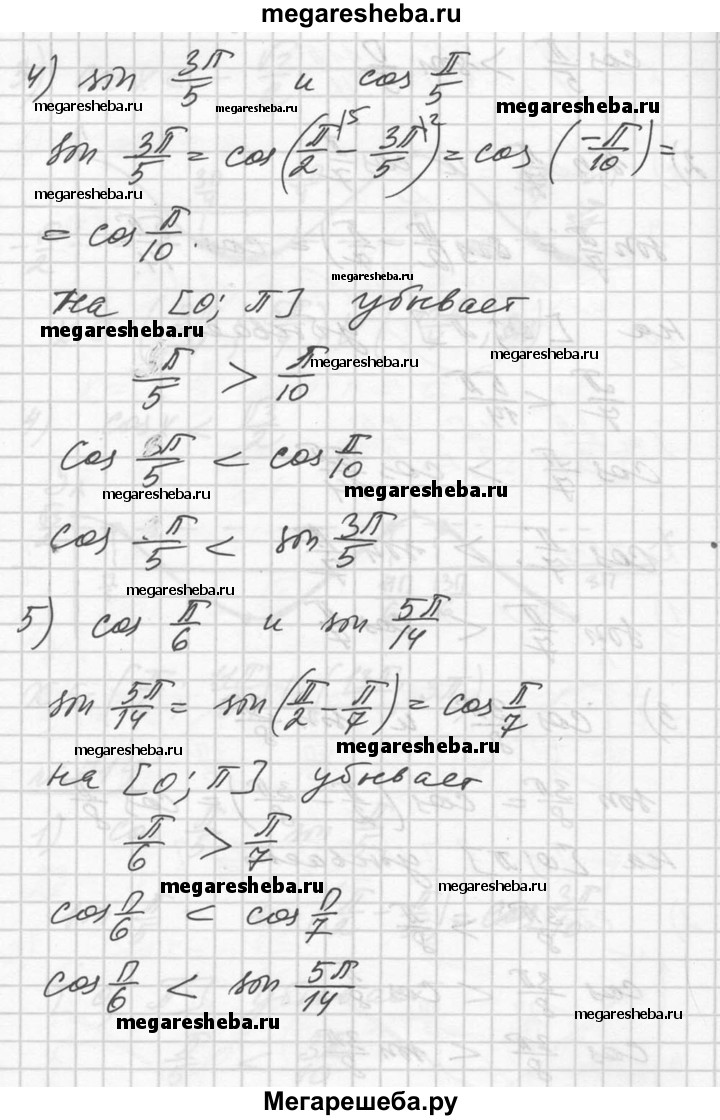 megaresheba.ru
4) sin 3π/5 и cos π/5
megaresheba.ru megaresheba.ru megaresheba.ru
sin 3π/5 = cos(π/2 \5 - 3π/5 \2) = cos(-π/10) =
megaresheba.ru
= cos π/10.
megaresheba.ru
на [0; π] убывает
megaresheba.ru
π/5 > π/10
megaresheba.ru megaresheba.ru
cos π/5 < cos π/10
megaresheba.ru megaresheba.ru
cos π/5 < sin 3π/5
megaresheba.ru
5) cos π/6 и sin 5π/14
sin 5π/14 = sin(π/2 - π/7) = cos π/7
megaresheba.ru megaresheba.ru
на [0; π] убывает
π/6 > π/7
megaresheba.ru megaresheba.ru
cos π/6 < cos π/7
cos π/6 < sin 5π/14
megaresheba.ru megaresheba.ru
Мегарешеба.ру